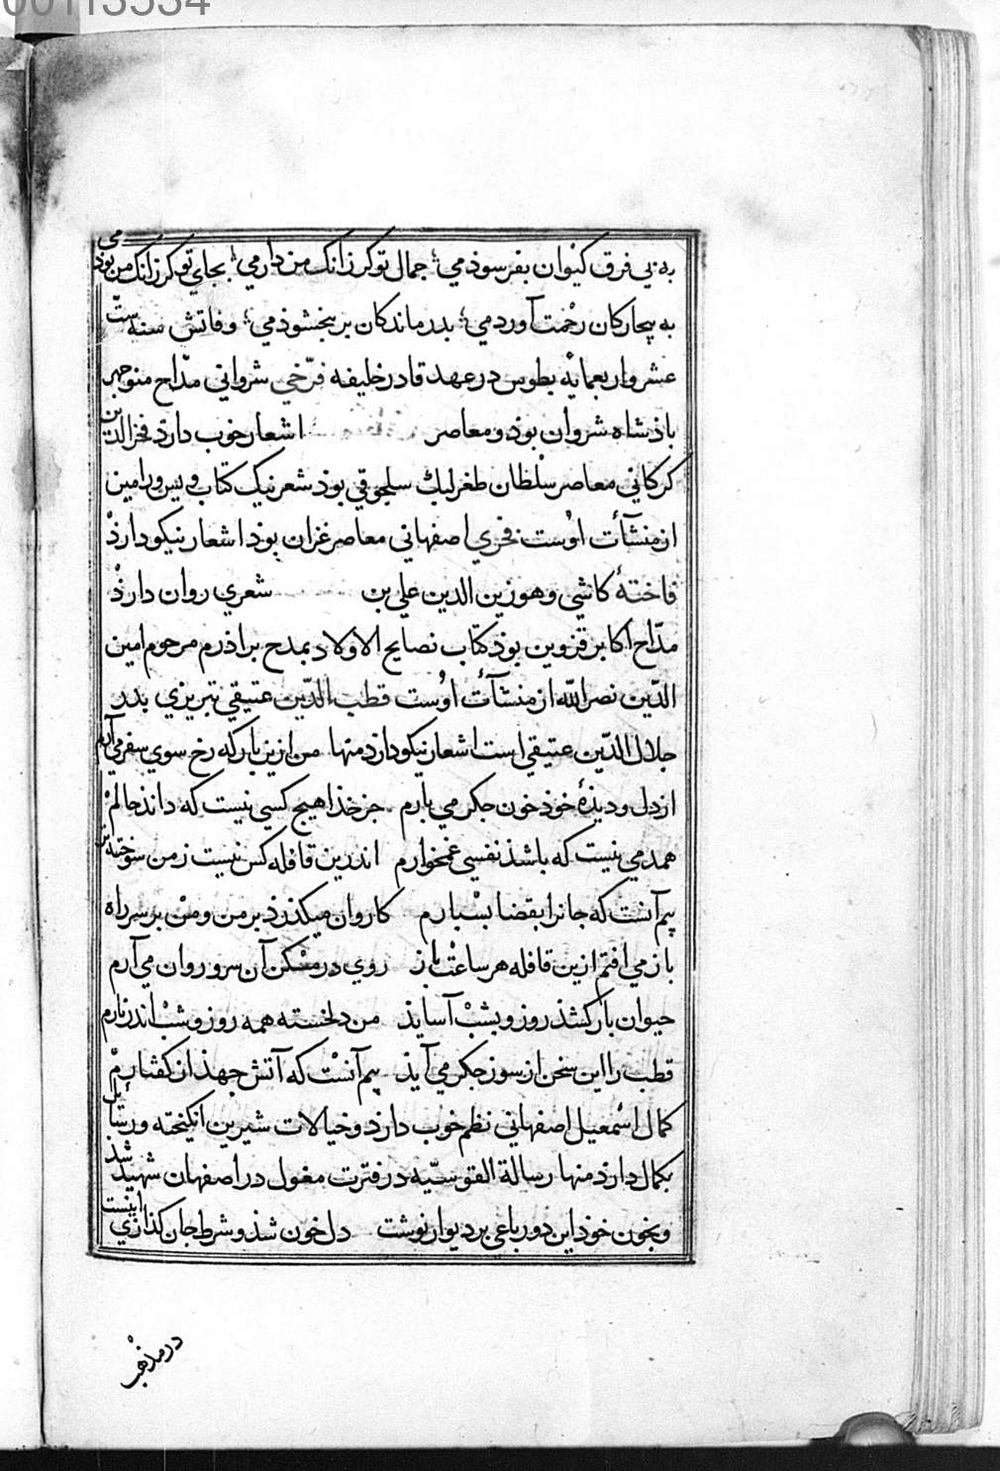 00113534
به پی فرق کیوان بفرسوذمی؛ جمال تو کر زانک من دارمی؛ بجای تو کر زانک من بوذمی
به بیجارکان رحمت آوردمی؛ بدرماندکان بر ببخشوذمی؛ وفاتش سنه ستّ
عشر واربعمائه بطوس در عهد قادر خلیفه فرّخی شروانی مدّاح منوجهر
باذشاه شروان بوذ ومعاصر اشعار خوب دارذ فخر الدین
کرکانی معاصر سلطان طغرلبك سلجوقی بوذ شعر نیک کتاب ویس ورامین
از منشآت اوست فخری اصفهانی معاصر غزان بوذ اشعار نیکو دارذ
فاختهٔ کاشی وهو زین الدین علی بن شعری روان دارذ
مدّاح اکابر قزوین بوذ کتاب نصایح الاولاد بمدح براذرم مرحوم امین
الدّین نصر الله از منشآت اوست قطب الدّین عتیقی تبریزی بدر
جلال الدّین عتیقی است اشعار نیکو دارذ منها من ازین بار که رخ سوی سفر می آرم
از دل ودیذهٔ خوذ خون جکر می بارم جز خذا هیج کسی نیست که داند حالم
همدمی نیست که باشذ نفسی غمخوارم اندرین قافله کس نیست ز من سوخته تر
بیم آنست که جانرا بقضا بسبارم کاروان میکذرذ بر من ومن بر سر راه
باز می افتم ازین قافله هر ساعت باز روی در مسکن آن سرو روان می آرم
حیوان بار کشذ روز وبشب آسایذ من دلخسته همه روز وشب اندر بارم
قطب را این سخن از سوز جکر می آیذ بیم آنست که آتش جهذ از کفتارم
کمال اسمعیل اصفهانی نظم خوب دارذ وخیالات شیرین انکیخته ورسائل
بکمال دارذ منها رسالة القوسیّه در فترت مغول در اصفهان شهید شد
وبخون خوذ این دو رباعی بر دیوار نوشت دل خون شذ وشرط جان کذازی اینست
در مذهب